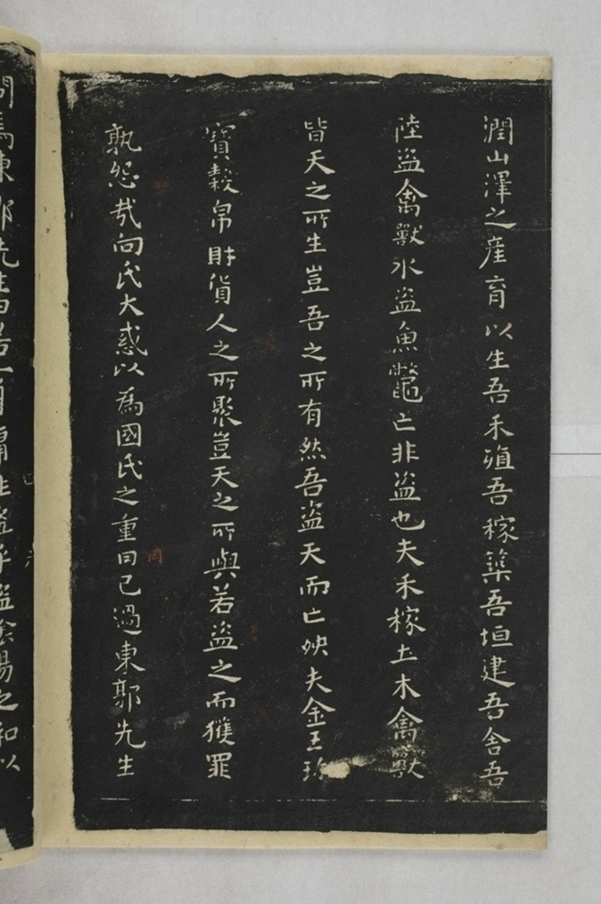 潤山澤之産育以生吾禾殖吾稼築吾垣建吾舍吾
陸盜禽獸水盜魚鼈亡非盜也夫禾稼土木禽獸
皆天之所生豈吾之所有然吾盜天而亡殃夫金玉珎
寶穀帛財貨人之所聚豈天之所與若盜之而獲罪
孰怨哉向氏大惑以爲國氏之重罔己過東郭先生
問焉東郭先生曰若一身庸非盜乎盜陰陽之和以